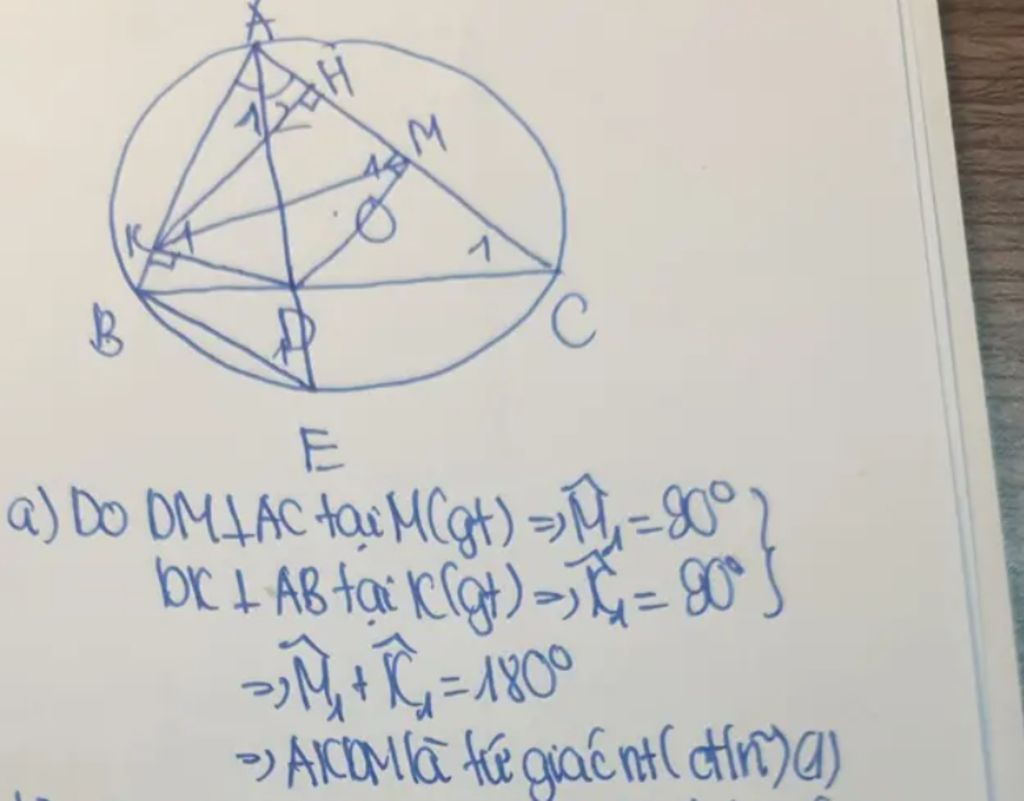 A
H
1 2
M
1
K 1
O
1
B
D
1
C
E
a) Do DM⊥AC tại M(gt) => M̂₁ = 90° }
DK ⊥ AB tại K(gt) => K̂₁ = 90° }
=> M̂₁ + K̂₁ = 180°
=> AKDM là tứ giác nt( đhn) (1)